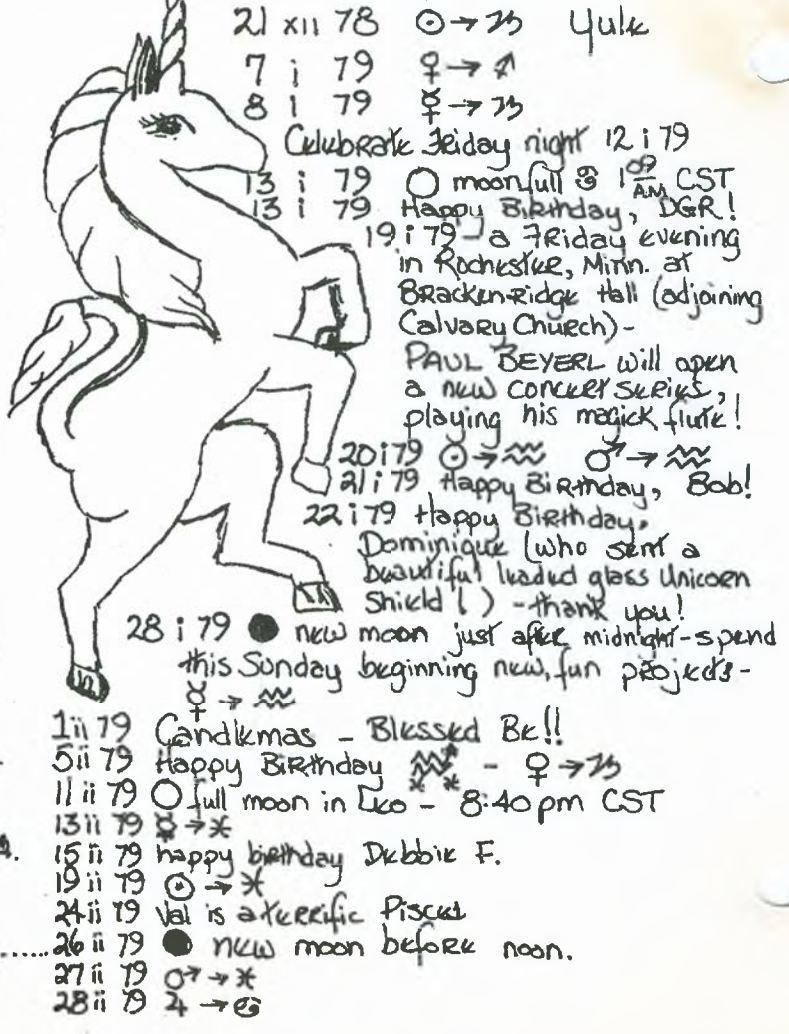 21 xii 78 ☉→♑ Yule
7 i 79 ♀→♐
8 i 79 ☿→♑
Celebrate Friday night 12 i 79
13 i 79 ○ moonfull ♋ 1:09 AM CST
13 i 79 Happy Birthday, DGR!
19 i 79 - a Friday evening
in Rochester, Minn. at
Bracken-Ridge Hall (adjoining
Calvary Church)-
PAUL BEYERL will open
a new concert series,
playing his magick flute!
20 i 79 ☉→♒ ♂→♒
21 i 79 Happy Birthday, Bob!
22 i 79 Happy Birthday,
Dominique (who sent a
beautiful leaded glass Unicorn
Shield!) - thank you!
28 i 79 ● new moon just after midnight-spend
this Sunday beginning new, fun projects-
☿→♒
1 ii 79 Candlemas - Blessed Be!!
5 ii 79 Happy Birthday ♒ - ♀→♑
11 ii 79 ○ full moon in Leo - 8:40 pm CST
13 ii 79 ☿→♓
15 ii 79 happy birthday Debbie F.
19 ii 79 ☉→♓
24 ii 79 Val is a terrific Pisces
......26 ii 79 ● new moon before noon.
27 ii 79 ♂→♓
28 ii 79 ♃→♋